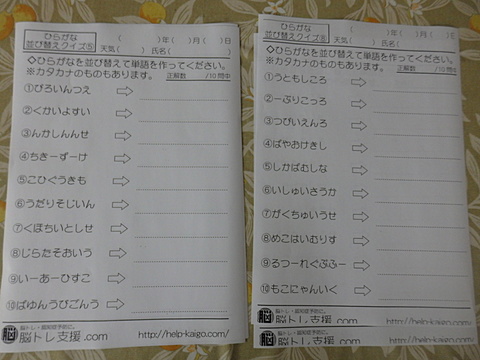 ひらがな
並び替えクイズ⑤
(　　)年(　)月(　)日
天気(　　) 氏名(　　　　)
◇ひらがなを並び替えて単語を作ってください。
※カタカナのものもあります。 正解数 /10問中
①ぴろいんつえ
②くかいよすい
③んかしんんせ
④ちきーずけ
⑤こひぐうきも
⑥うだりそじいん
⑦くぼちいとしせ
⑧じらたそおいう
⑨いーあーひすこ
⑩ばゆんうびごんう
脳トレ・認知症予防に。
脳トレ支援.com
http://help-kaigo.com/
ひらがな
並び替えクイズ
(　　)年(　)月(　)日
天気(　　) 氏名(　　　　)
◇ひらがなを並び替えて単語を作ってください。
※カタカナのものもあります。 正解数 /10問中
①うともしころ
②ーぶりこっろ
③つぴいえんろ
④ばやおけきし
⑤しかばむしな
⑥いしゅいさうか
⑦がくちゅいうせ
⑧めこはいむりす
⑨るつーれぐぷふー
⑩もこにゃんいく
脳トレ・認知症予防に。
脳トレ支援.com
http://help-kaigo.com/
脳トレ・認知症予防に。
脳トレ支援.com
http://help-kaigo.com/